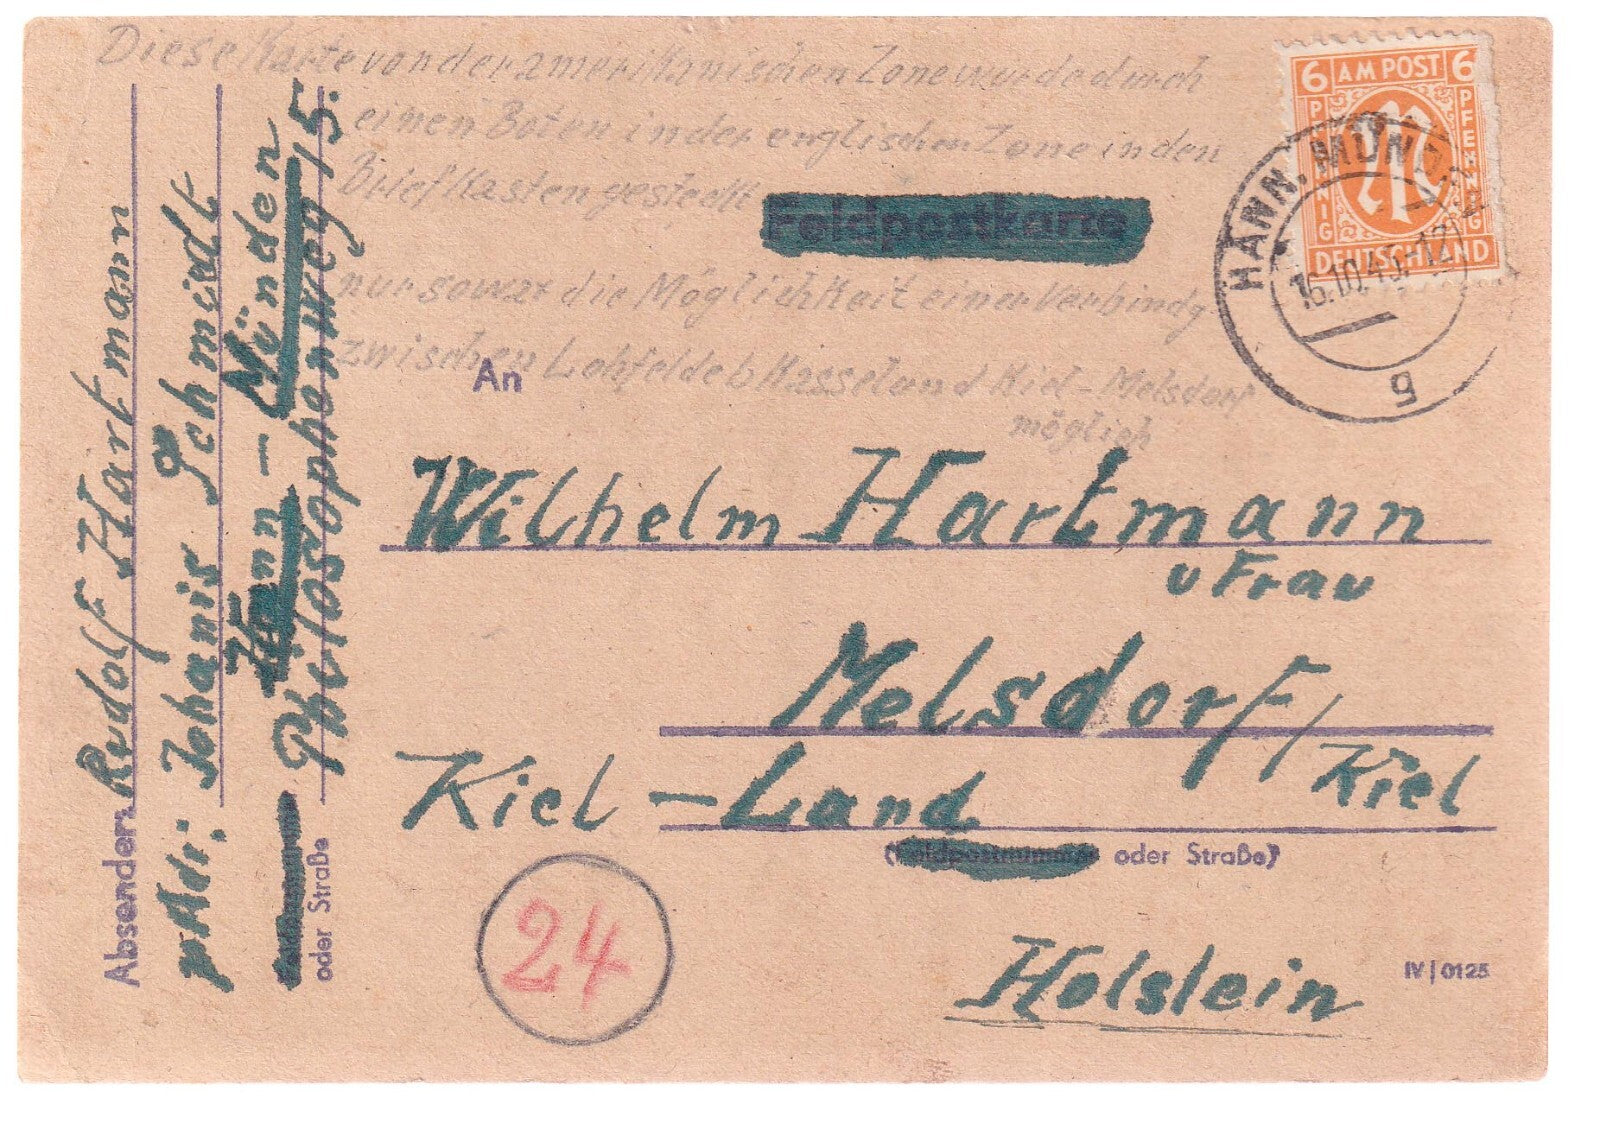 Diese Karte von der amerikanischen Zone wurde durch
einen Boten in der englischen Zone in den
Briefkasten gesteckt
nur so war die Möglichkeit einer Verbindg
zwischen Lohfelde b Kassel und Kiel-Melsdorf
möglich
Feldpostkarte
6 AM POST 6
PFENNIG
PFENNIG
M
DEUTSCHLAND
HANN. MÜND
16.10.45-12
g
An
Wilhelm Hartmann
u Frau
Melsdorf/
Kiel
Kiel-Land
(Feldpostnummer oder Straße)
Holstein
IV/0125
24
Absender:
Rudolf Hartmann
pAdr: Johanis Schmidt
Hann-Münden
Philosophenweg 15.
oder Straße